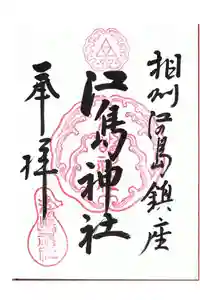 相州江の島鎮座
江島神社
奉拝